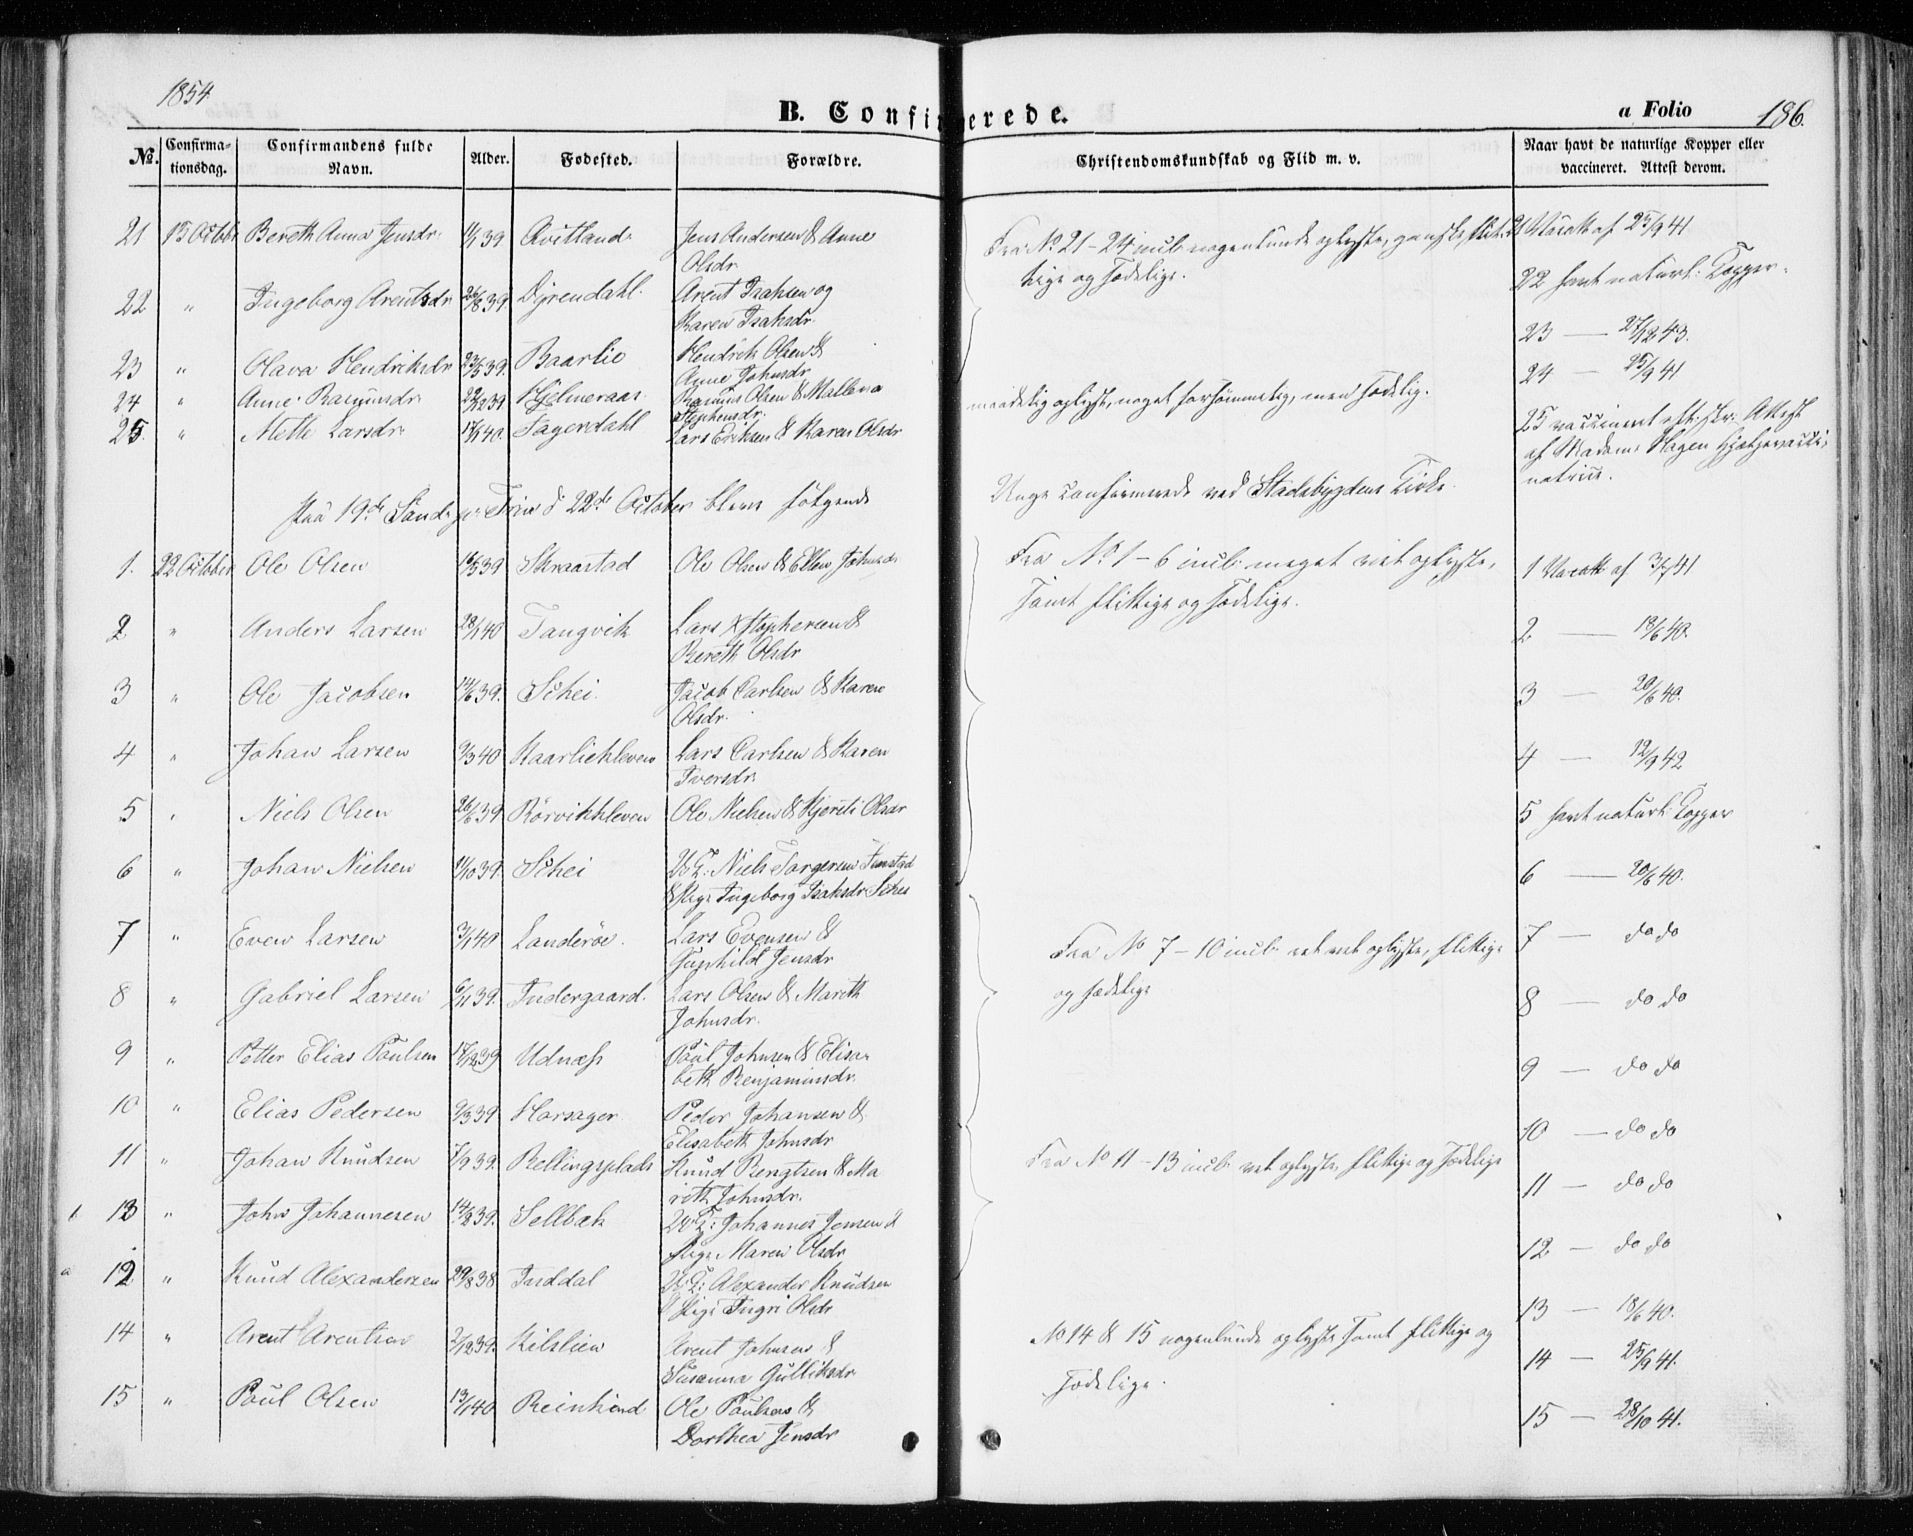 1854
B. Confirmerede.
a Folio 186.
No.
Confirma-
tionsdag.
Confirmandens fulde
Navn.
Alder.
Fødested.
Forældre.
Christendomskundskab og Flid m. v.
Naar havt de naturlige Kopper eller
vaccineret. Attest derom.
21 15 Octbr Bereth Anna Jensdr. 39 Qvitland Jens Andersen & Anne
Olsdr.
Fra No 21-24 incl: nogenlunde oplyste, ganske flit-
tige og sædelige.
21 Vacatt af 25/9 41
22 " Ingeborg Arentsdr 26/8 39. Dyrendahl. Arent Isaksen og
Karen Isaksdr.
22 havt naturl: Kopper.
23 " Olava Hendriksdr 23/5 39. Baarlie Hendrik Olsen &
Anne Johnsdr
23 — 27/12 43.
24 " Anne Rasmusdr. 22/12 39 Hjelmeraas Rasmus Olsen & Malena
Stephensdr.
24 — 25/9 41
25. " Mette Larsdr. 17/1 40. Fagerdahl Lars Eriksen & Karen Olsdr
maadelig oplyst, noget forsømmelig, men sædelig.
25 vaccineret efter Attest
af Madam Hagen Hjælpevacci-
natrice.
Paa 19de Sönd: p: Trin d 22de October bleve følgende
Unge confirmerede ved Stadsbygdens Kirke.
1. 22 October Ole Olsen 16/5 39 Skraastad Ole Olsen & Ellen Johnsdr
Fra No 1-6 incl: meget vel oplyste,
samt flittige og sædelige.
1 Vacatt af 3/7 41
2 " Anders Larsen 28/1 40 Tangvik Lars Kstophersen &
Bereth Olsdr
2 — 18/6 40.
3 " Ole Jacobsen 14/6 39. Schei. Jacob Carlsen & Karen
Olsdr.
3 — 20/6 40.
4 " Johan Larsen 9/3 40 Haarliekleven Lars Carlsen & Karen
Iversdr.
4 — 12/9 42
5 " Niels Olsen 26/6 39 Rörvikkleven Ole Nielsen & Kjersti Olsdr
5 havt naturl: Kopper
6 " Johan Nielsen 11/10 39. Schei U.F: Niels Torgersen Fenstad
& Pige Ingeborg Isaksdr Schei
6 — 20/6 40.
7 " Even Larsen 3/1 40 Landeröe. Lars Evensen &
Gunhild Jensdr
Fra No 7-10 incl: ret vel oplyste, flittige
og sædelige
7 — do do
8 " Gabriel Larsen 6/11 39. Indergaard. Lars Olsen & Mareth
Johnsdr.
8 — do do
9 " Petter Elias Paulsen 17/12 39 Udnæss Paul Johnsen & Elisa-
beth Benjaminsdr.
9 — do do
10 " Elias Pedersen 9/3 39 Horsager Peder Johansen &
Elisabeth Johnsdr
10 — do do
11 " Johan Knudsen 7/9 39. Rellingsplads Knud Bengtsen & Ma
reth Johnsdr.
Fra No 11-13 incl: vel oplyste, flittige og sædelige
11 — do do
13 " John Johannesen 14/8 39. Sellbæk U.F: Johannes Jensen &
Pige Maren Olsdr
12 — do do
12 " Knud Alexandersen 29/8 38 Inddal U.F: Alexander Knudsen
& Pige Ingri Olsdr
13 — 18/6 40.
14 " Arent Arentsen 2/12 39. Kilslien Arent Johnsen &
Susanna Gulliksdr
No 14 & 15 nogenlunde oplyste samt flittige og
sædelige.
14 — 25/9 41.
15 " Paul Olsen 13/1 40 Reinkind Ole Paulsen &
Dorthea Jensdr
15 — 28/10 41.